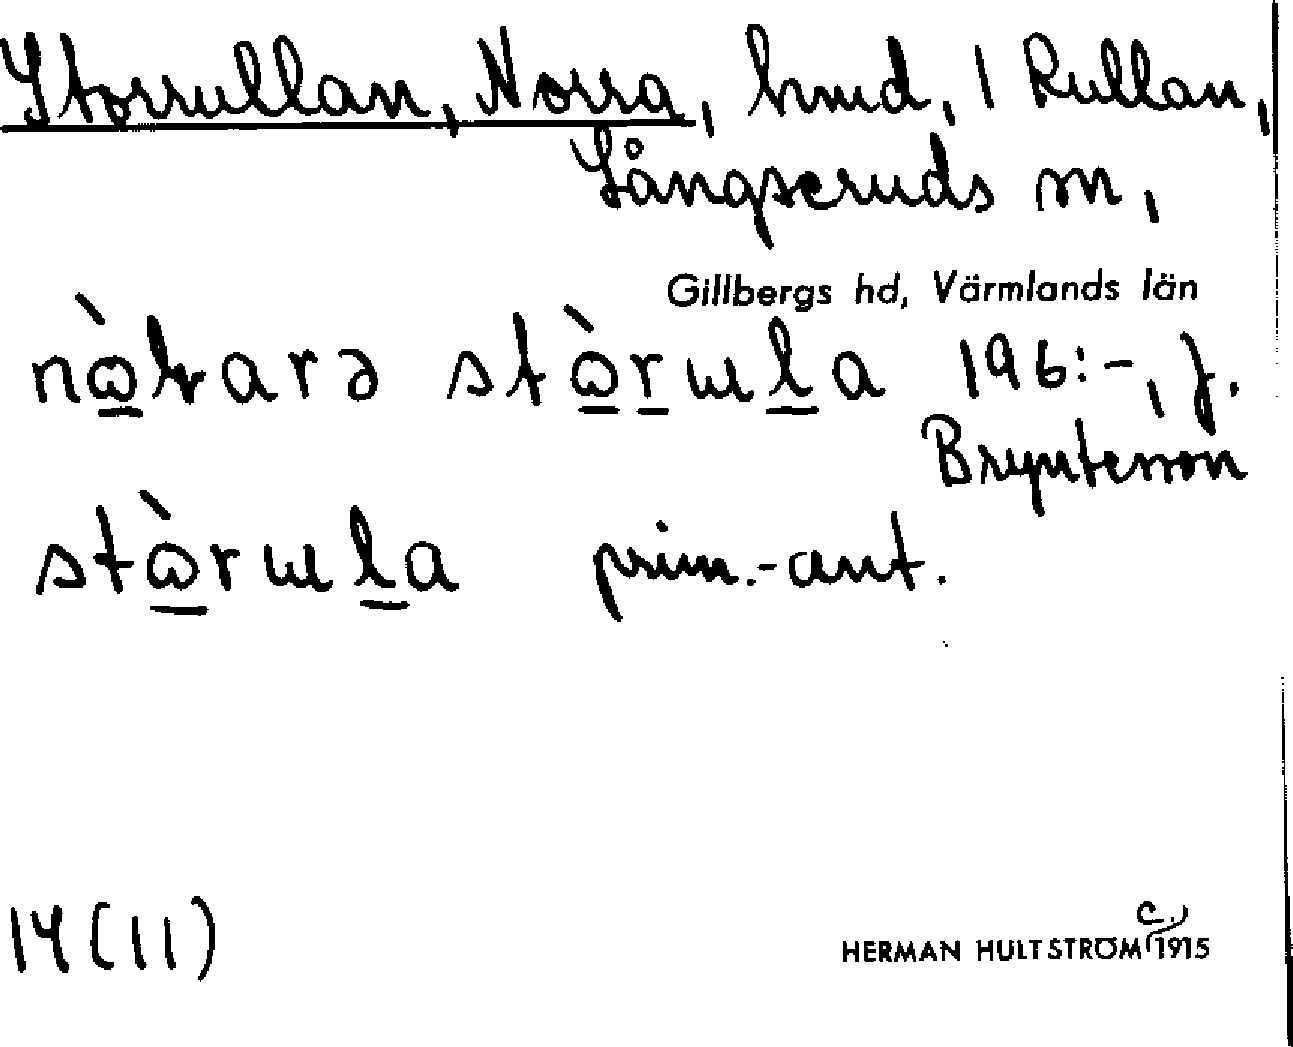 Storrullan, Norra, hmd, 1 Rullan,
Långseruds sn,
Gillbergs hd, Värmlands län
stɷ̀rɯla 196:-, J.
Bryntesson
stɷ̀rɯla prim.-ant.
14 (11)
HERMAN HULTSTRÖM c.) 1915